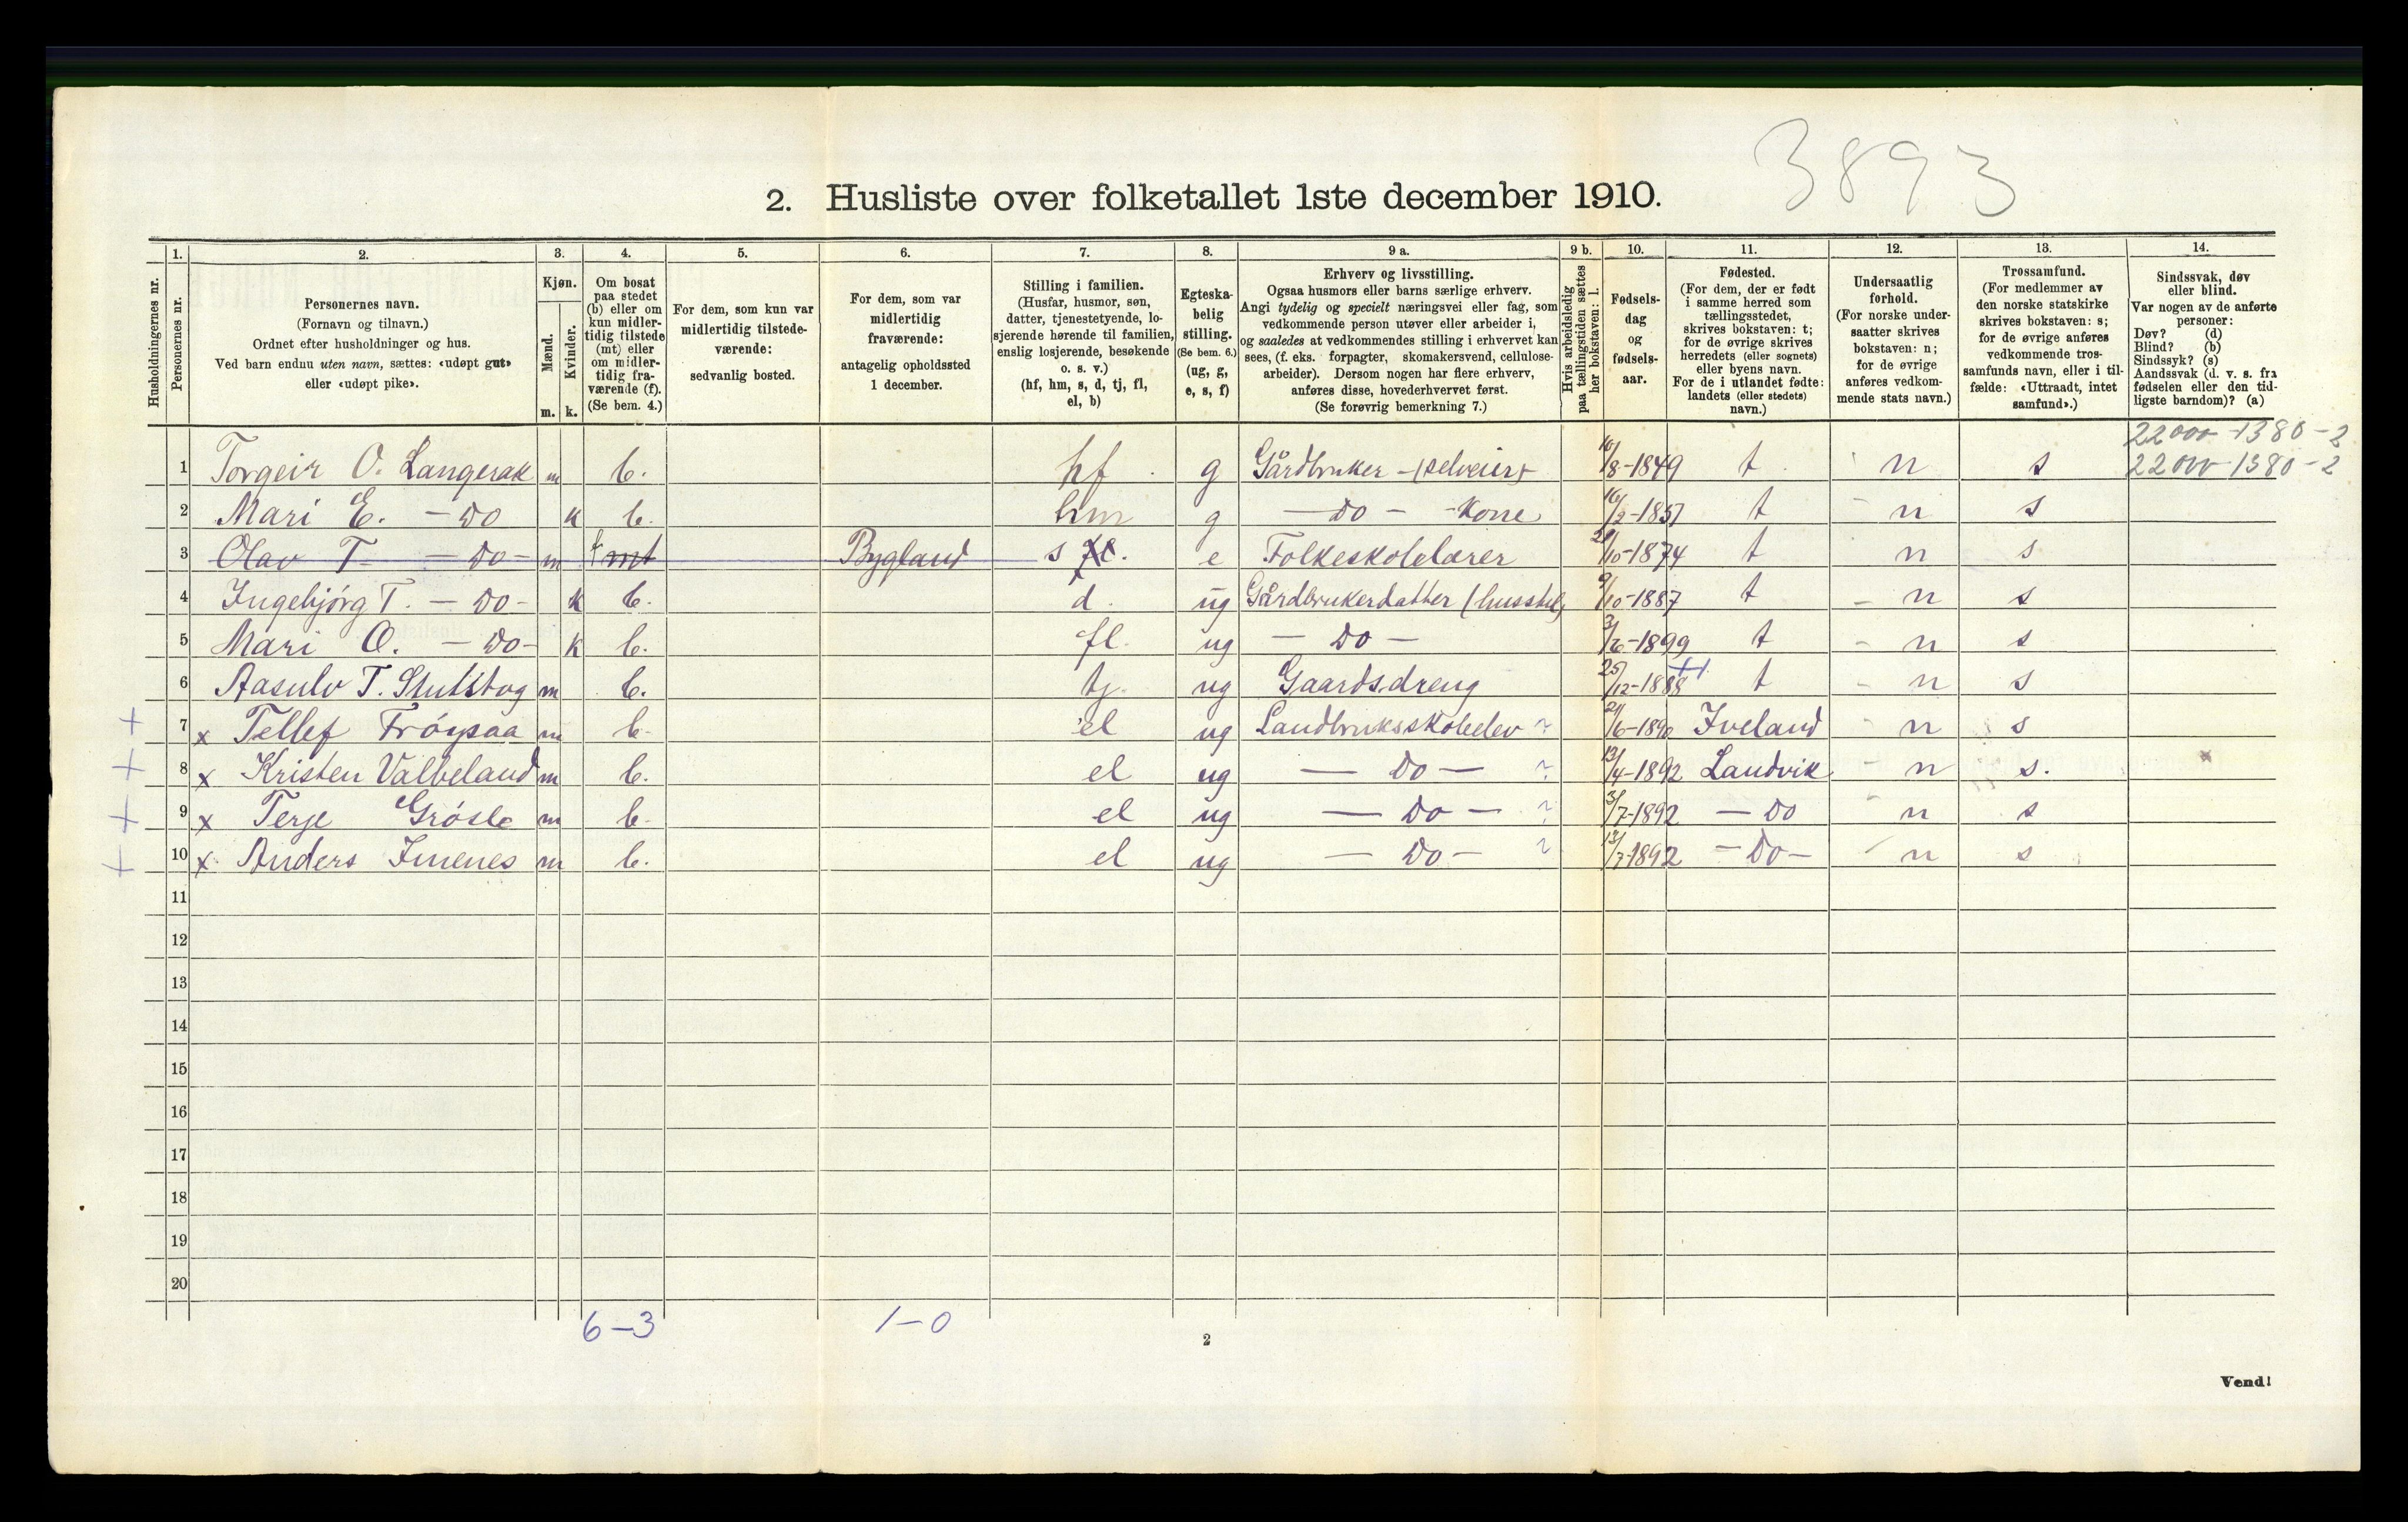 3893
2. Husliste over folketallet 1ste december 1910.
Husholdningernes nr.
1.
Personernes nr.
2.
Personernes navn.
(Fornavn og tilnavn.)
Ordnet efter husholdninger og hus.
Ved barn endnu uten navn, sættes: «udøpt gut»
eller «udøpt pike».
3.
Kjøn.
Mænd.
Kvinder.
m. k.
4.
Om bosat
paa stedet
(b) eller om
kun midler-
tidig tilstede
(mt) eller
om midler-
tidig fra-
værende (f).
(Se bem. 4.)
5.
For dem, som kun var
midlertidig tilstede-
værende:
sedvanlig bosted.
6.
For dem, som var
midlertidig
fraværende:
antagelig opholdssted
1 december.
7.
Stilling i familien.
(Husfar, husmor, søn,
datter, tjenestetyende, lo-
sjerende hørende til familien,
enslig losjerende, besøkende
o. s. v.)
(hf, hm, s, d, tj, fl,
el, b)
8.
Egteska-
belig
stilling.
(Se bem. 6.)
(ug, g,
e, s, f)
9 a.
Erhverv og livsstilling.
Ogsaa husmors eller barns særlige erhverv.
Angi tydelig og specielt næringsvei eller fag, som
vedkommende person utøver eller arbeider i,
og saaledes at vedkommendes stilling i erhvervet kan
sees, (f. eks. forpagter, skomakersvend, cellulose-
arbeider). Dersom nogen har flere erhverv,
anføres disse, hovederhvervet først.
(Se forøvrig bemerkning 7.)
9 b.
Hvis arbeidsledig
paa tællingstiden sættes
her bokstaven: l.
10.
Fødsels-
dag
og
fødsels-
aar.
11.
Fødested.
(For dem, der er født
i samme herred som
tællingsstedet,
skrives bokstaven: t;
for de øvrige skrives
herredets (eller sognets)
eller byens navn.
For de i utlandet fødte:
landets (eller stedets)
navn.)
12.
Undersaatlig
forhold.
(For norske under-
saatter skrives
bokstaven: n;
for de øvrige
anføres vedkom-
mende stats navn.)
13.
Trossamfund.
(For medlemmer av
den norske statskirke
skrives bokstaven: s;
for de øvrige anføres
vedkommende tros-
samfunds navn, eller i til-
fælde: «Uttraadt, intet
samfund».)
14.
Sindssvak, døv
eller blind.
Var nogen av de anførte
personer:
Døv? (d)
Blind? (b)
Sindssyk? (s)
Aandssvak (d. v. s. fra
fødselen eller den tid-
ligste barndom)? (a)
22000-1380-2
1 Torgeir O. Langerak m b. hf g Gårdbruker - (selveier) 10/8-1849 t n s 22000-1380-2
2 Mari E. - Do k b. hm g - Do - Kone 16/2-1857 t - n s
3 Olav T - Do - m f mt Bygland s fl. e Folkeskolelærer /10-1874 t n s
4 Ingebjörg T. - Do - k b. d. ug Gårdbrukerdatter (husstel) 9/10-1887 t - n s
5 Mari O. - Do - k b. fl. ug - Do - 3/6-1899 t - n s
6 Aasulv T. m b. tj. ug Gaardsdreng 25/12-1888 t - n s
7 x Tellef Fröysaa m b. el ug Landbruksskoleelev ? /6-1890 Iveland - n s
8 x Kristen Valbeland m b. el ug - Do - ? 13/4-1892 Landvik - n s.
9 x Terje Grösle m b. el ug - Do - ? 3/7-1892 - Do - n s
10 x Anders Imenes m b. el ug - Do - ? 13/7-1892 - Do - - n s
11
12
13
14
15
16
17
18
19
20
6-3 1-0
2
Vend!